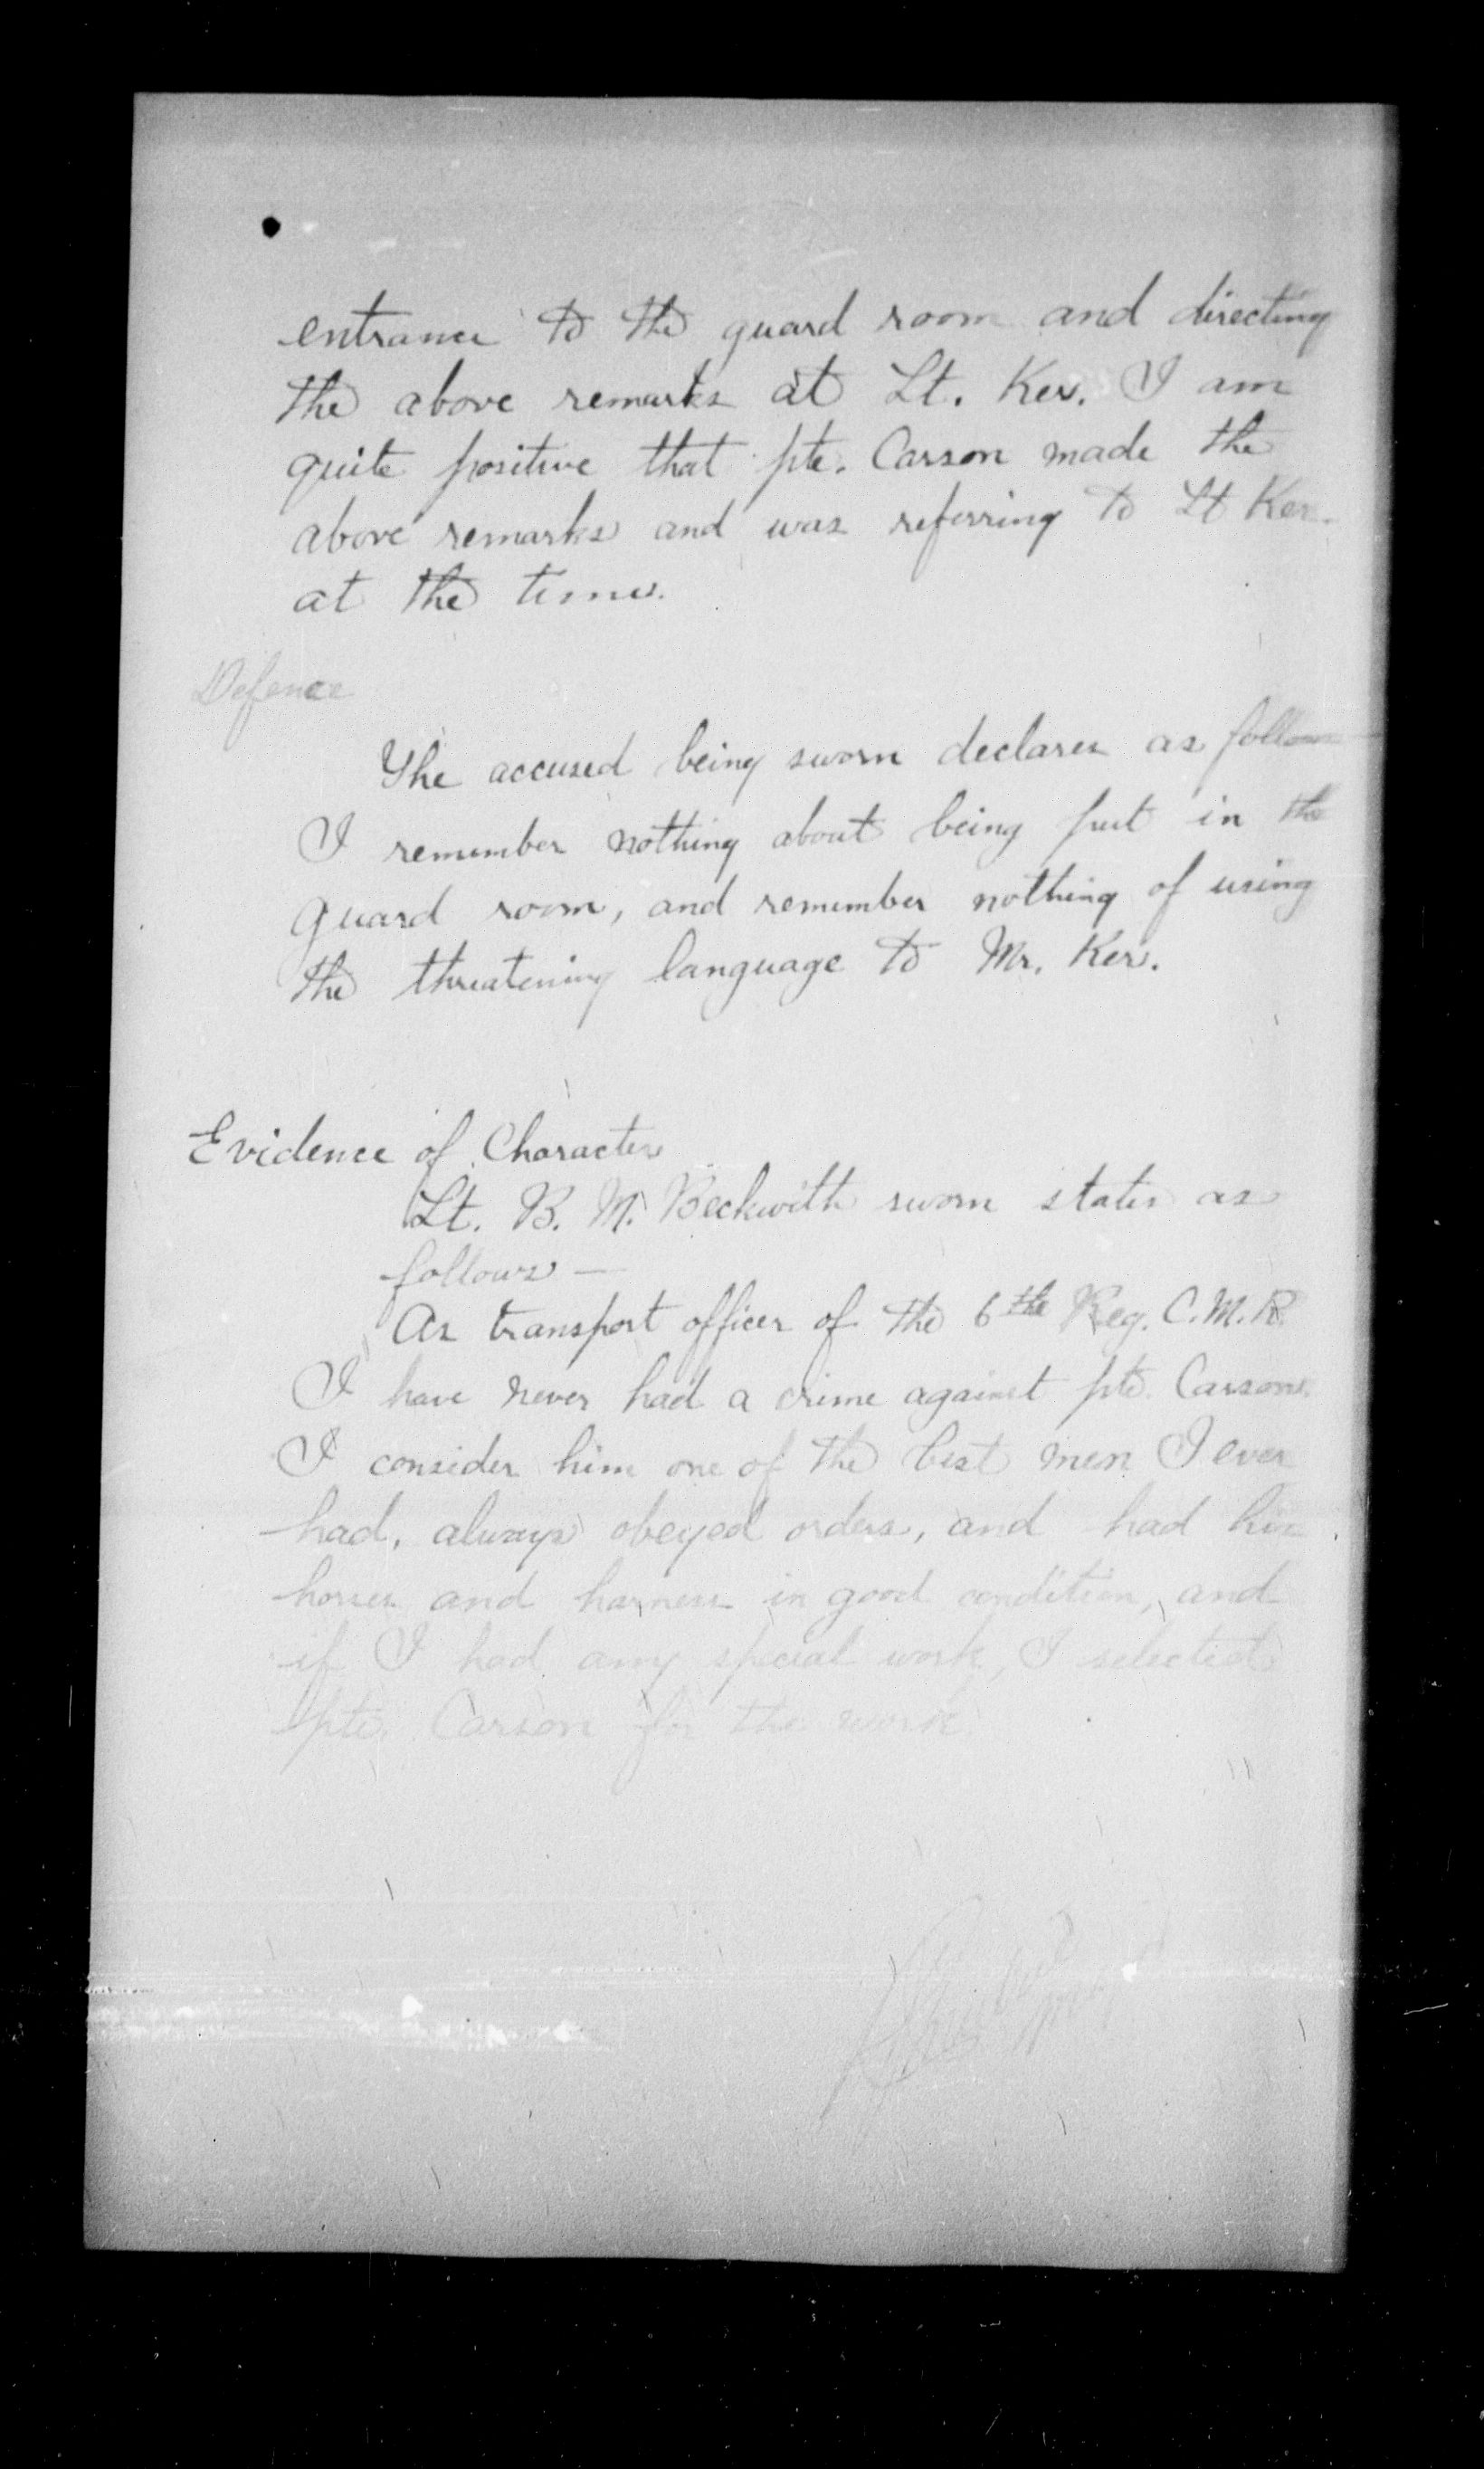 entrance to the guard room and directing
the above remarks at Lt. Ker. I am
quite positive that pte. Carson made the
above remarks and was referring to Lt Ker.
at the time.
Defence
The accused being sworn declares as follows
I remember nothing about being put in the
guard room, and remember nothing of using
the threatening language to Mr. Ker.
Evidence of Character
Lt. B. M. Beckwith sworn states as
follows —
As transport officer of the 6th Reg. C.M.R.
I have never had a crime against pte. Carson.
I consider him one of the best men I ever
had, always obeyed orders, and had his
horses and harness in good condition, and
if I had any special work, I selected
pte. Carson for the work